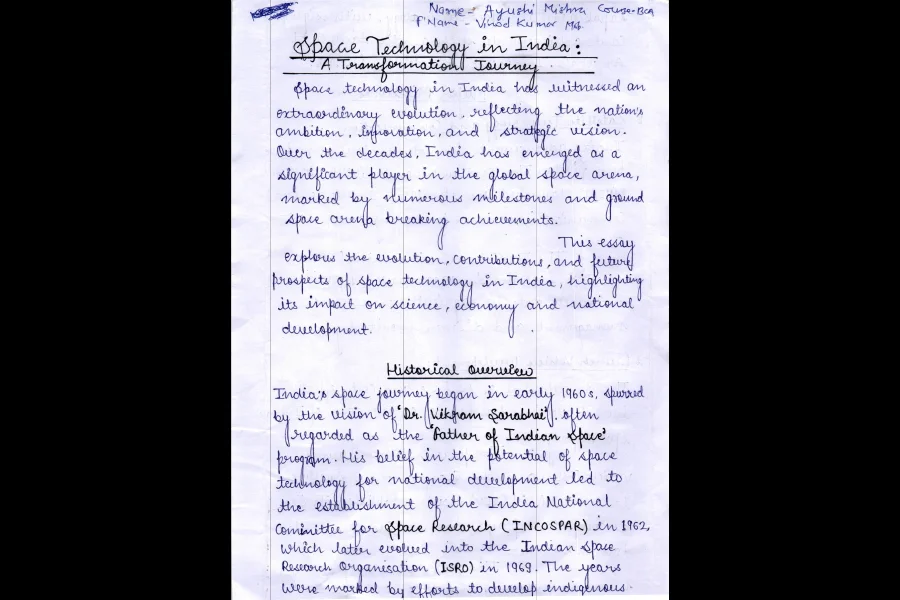 Name - Ayushi Mishra Course-BCA
F'Name - Vinod Kumar
Space Technology in India:
A Transformation Journey
Space technology in India has witnessed an
extraordinary evolution, reflecting the nation's
ambition, innovation, and strategic vision.
Over the decades, India has emerged as a
significant player in the global space arena,
marked by numerous milestones and ground
space arena breaking achievements.
This essay
explores the evolution, contributions, and future
prospects of space technology in India, highlighting
its impact on science, economy and national
development.
Historical Overview
India's space journey began in early 1960s, spurred
by the vision of 'Dr. Vikram Sarabhai'. often
regarded as the 'Father of Indian Space'
program. His belief in the potential of space
technology for national development led to
the establishment of the India National
Committee for Space Research (INCOSPAR) in 1962,
which later evolved into the Indian Space
Research Organisation (ISRO) in 1969. The years
were marked by efforts to develop indigenous.